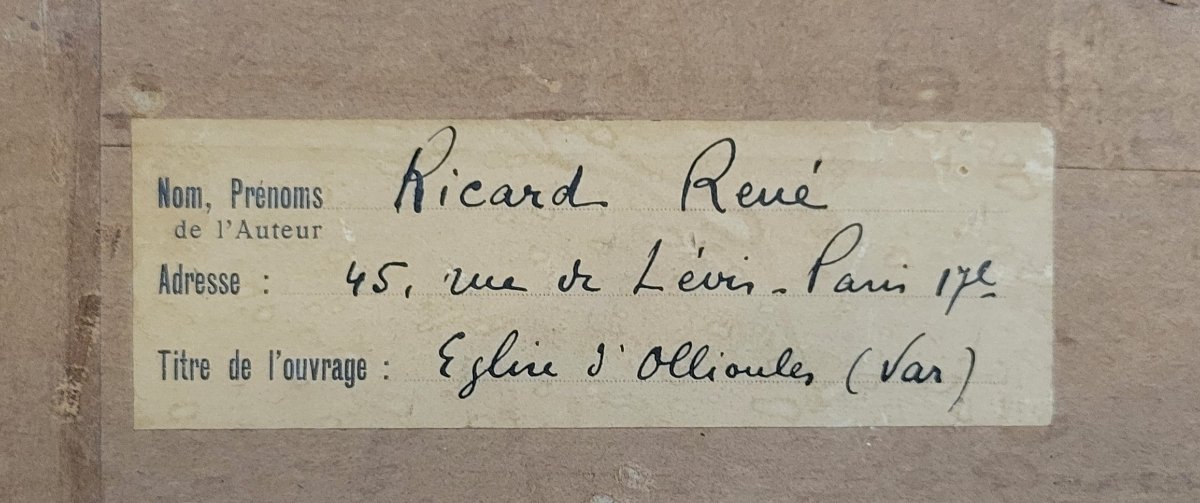 Nom, Prénoms Ricard René
de l'Auteur
Adresse : 45, rue de Lévis - Paris 17e
Titre de l'ouvrage : Eglise d'Ollioules (Var)